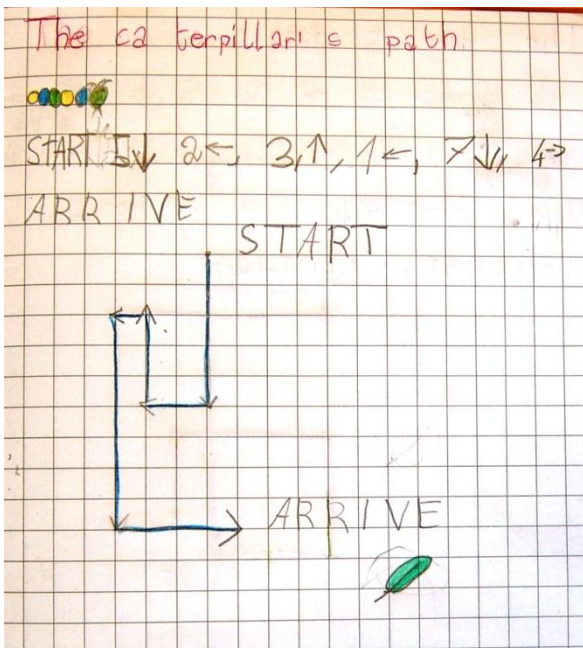 The ca terpillar's path
START 5↓ 2←, 3,↑, 1←, 7↓, 4→
ARRIVE
START
ARRIVE